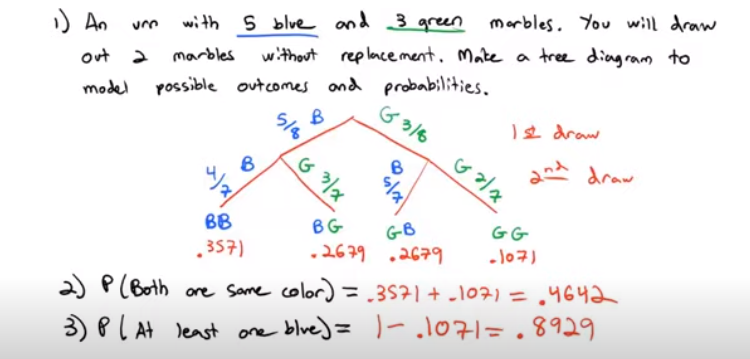 1) An urn with 5 blue and 3 green marbles. You will draw
out 2 marbles without replacement. Make a tree diagram to
model possible outcomes and probabilities.
5/8 B G 3/8 1st draw
4/7 B G 3/7 B 5/7 G 2/7 2nd draw
BB BG GB GG
.3571 .2679 .2679 .1071
2) P(Both are same color) = .3571 + .1071 = .4642
3) P(At least one blue) = 1 - .1071 = .8929